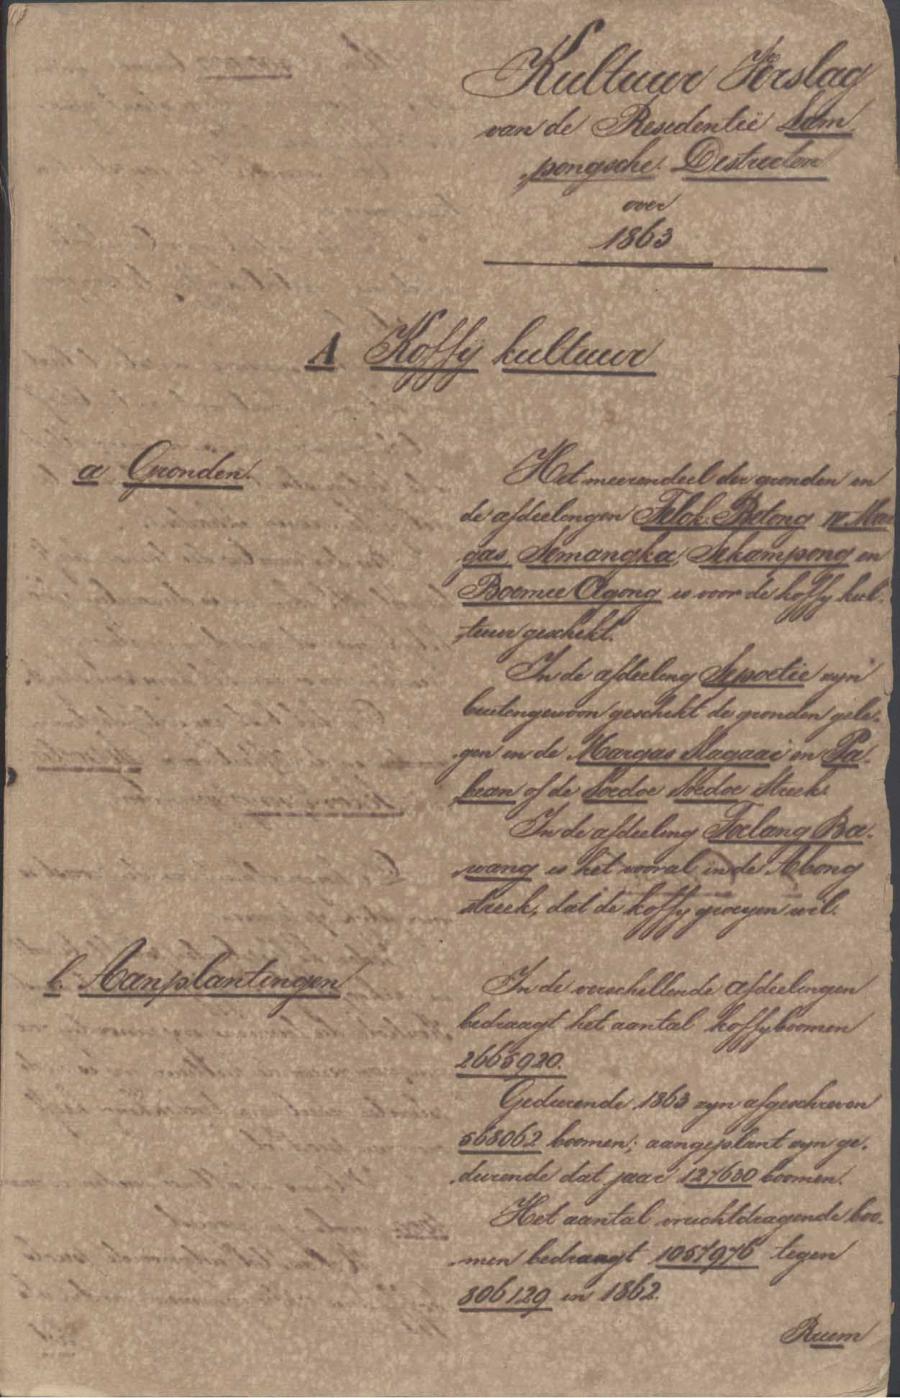 Kultuur Verslag
van de Residentie Lam
pongsche Districten
over
1863
A Koffij kultuur
a Gronden.
Het meerendeel der gronden in
de afdeelingen Telok Betong IV Mar
gas, Semangka, Sekampong en
Boemie Agong is voor de koffij kul-
tuur geschikt.
In de afdeeling Sepoetie zijn
buitengewoon geschikt de gronden gele-
gen in de Margas Magaai en Pa-
bean of de Soedoe Soedoe Streek.
In de afdeeling Toelang Ba-
wang is het vooral in de Abong
streek, dat de koffij groeijen wil.
b. Aanplantingen
In de verschillende afdeelingen
bedraagt het aantal koffijboomen
2665920.
Gedurende 1863 zijn afgeschreven
568062 boomen; aangeplant zijn ge-
durende dat jaar 127630 boomen.
Het aantal vruchtdragende boo-
men bedraagt 1057976 tegen
806129 in 1862.
Ruim